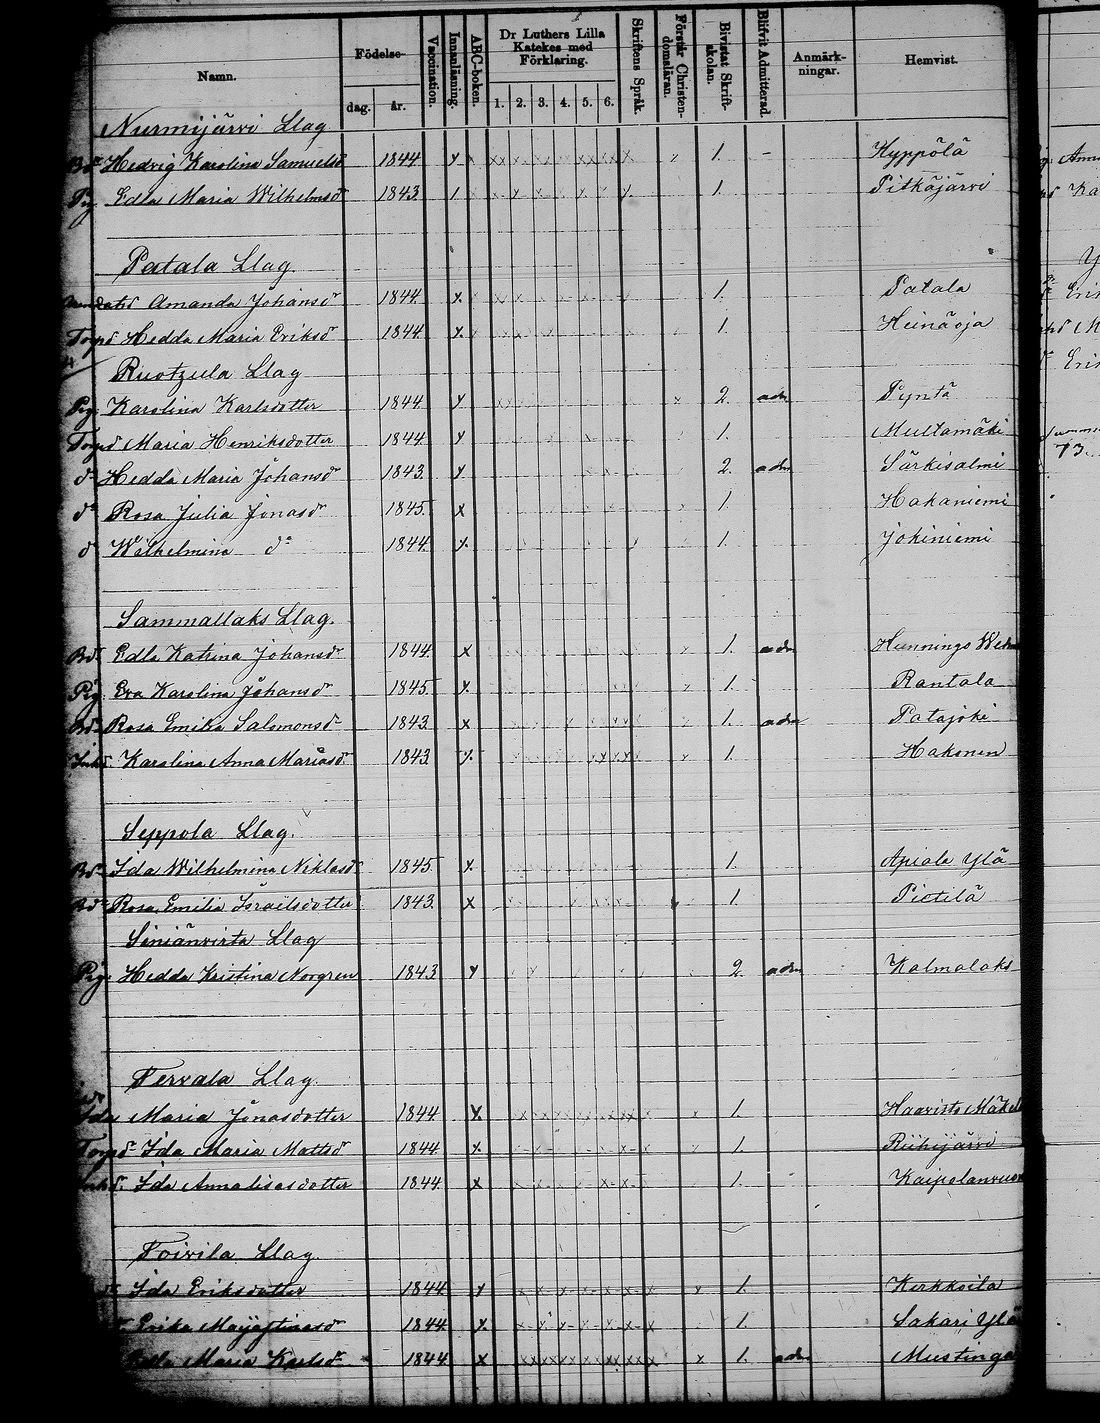 Namn. Födelse- dag. år. Vaccination. Innanläsning. ABC-boken. Dr Luthers Lilla Katekes med Förklaring. 1. 2. 3. 4. 5. 6. Skriftens Språk. Förstår Christendomsläran. Bivistat Skriftskolan. Blifvit Admitterad. Anmärkningar. Hemvist.
Nurmijärvi Llag
Bdr Hedvig Karolina Samuelsdr 1844 1. – Hyppölä
Pig. Edla Maria Wilhelmsdr 1843. 1. Pitkäjärvi
Patala Llag
Amanda Johansdr 1844 1. Patala
Torpd Hedda Maria Eriksdr 1844 1. Heinäoja
Ruotzula Llag
Pig. Karolina Karlsdotter 1844 2. adm Pyntä
Torpd Maria Henriksdotter 1844 1. Multamäki
do Hedda Maria Johansdr 1843. 2. adm Särkisalmi
do Rosa Julia Jonasdr 1845. 1. Hakaniemi
do Wilhelmina do 1844. 1. Jokiniemi
Sammallaks Llag.
Bdr Edla Katrina Johansdr 1844. 1. adm Hennings
Pig. Eva Karolina Johansdr 1845. 1. Rantala
Bdr Rosa Emilia Salomonsdr 1843. 1. adm Patajoki
Karolina Anna Mariasdr 1843. 1. Hakonen
Seppola Llag.
Bdr Ida Wilhelmina Niklasdr 1845. 1. Apiala Ylä
Bdr Rosa Emilia Israelsdotter 1843. 1. Pietilä
Siniänvirta Llag
Pig. Hedda Kristina Norgren 1843 2. adm Kalmalaks
Tervala Llag.
Ida Maria Jonasdotter 1844 1. Haavisto
Torpdr Ida Maria Mattsdr 1844 1. Riihijärvi
Ida Annalisasdotter 1844. 1.
Toivila Llag.
Ida Eriksdotter 1844. 1. Kirkkoila
Erika 1844. 1. Sakari Ylä
Maria Karlsdr 1844. 1. adm
73.